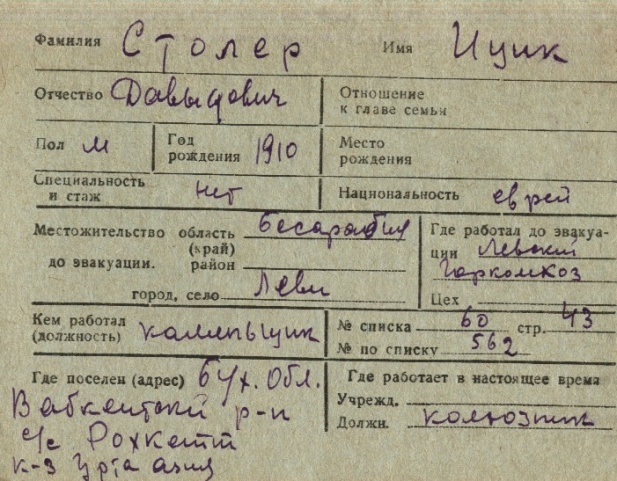 Фамилия Столер Имя Ицик
Отчество Давыдович Отношение к главе семьи
Пол М Год рождения 1910 Место рождения
Специальность и стаж нет Национальность еврей
Местожительство область (край) Бесарабия
до эвакуации. район
город, село Леви
Где работал до эвакуации Левский
Цех
Кем работал (должность)
№ списка 60 стр. 43
№ по списку 562
Где поселен (адрес) бух. Обл.
Вабкентский р-н
с/с Рохкетт
к-з Урта азия
Где работает в настоящее время
Учрежд.
Должн. колхозник